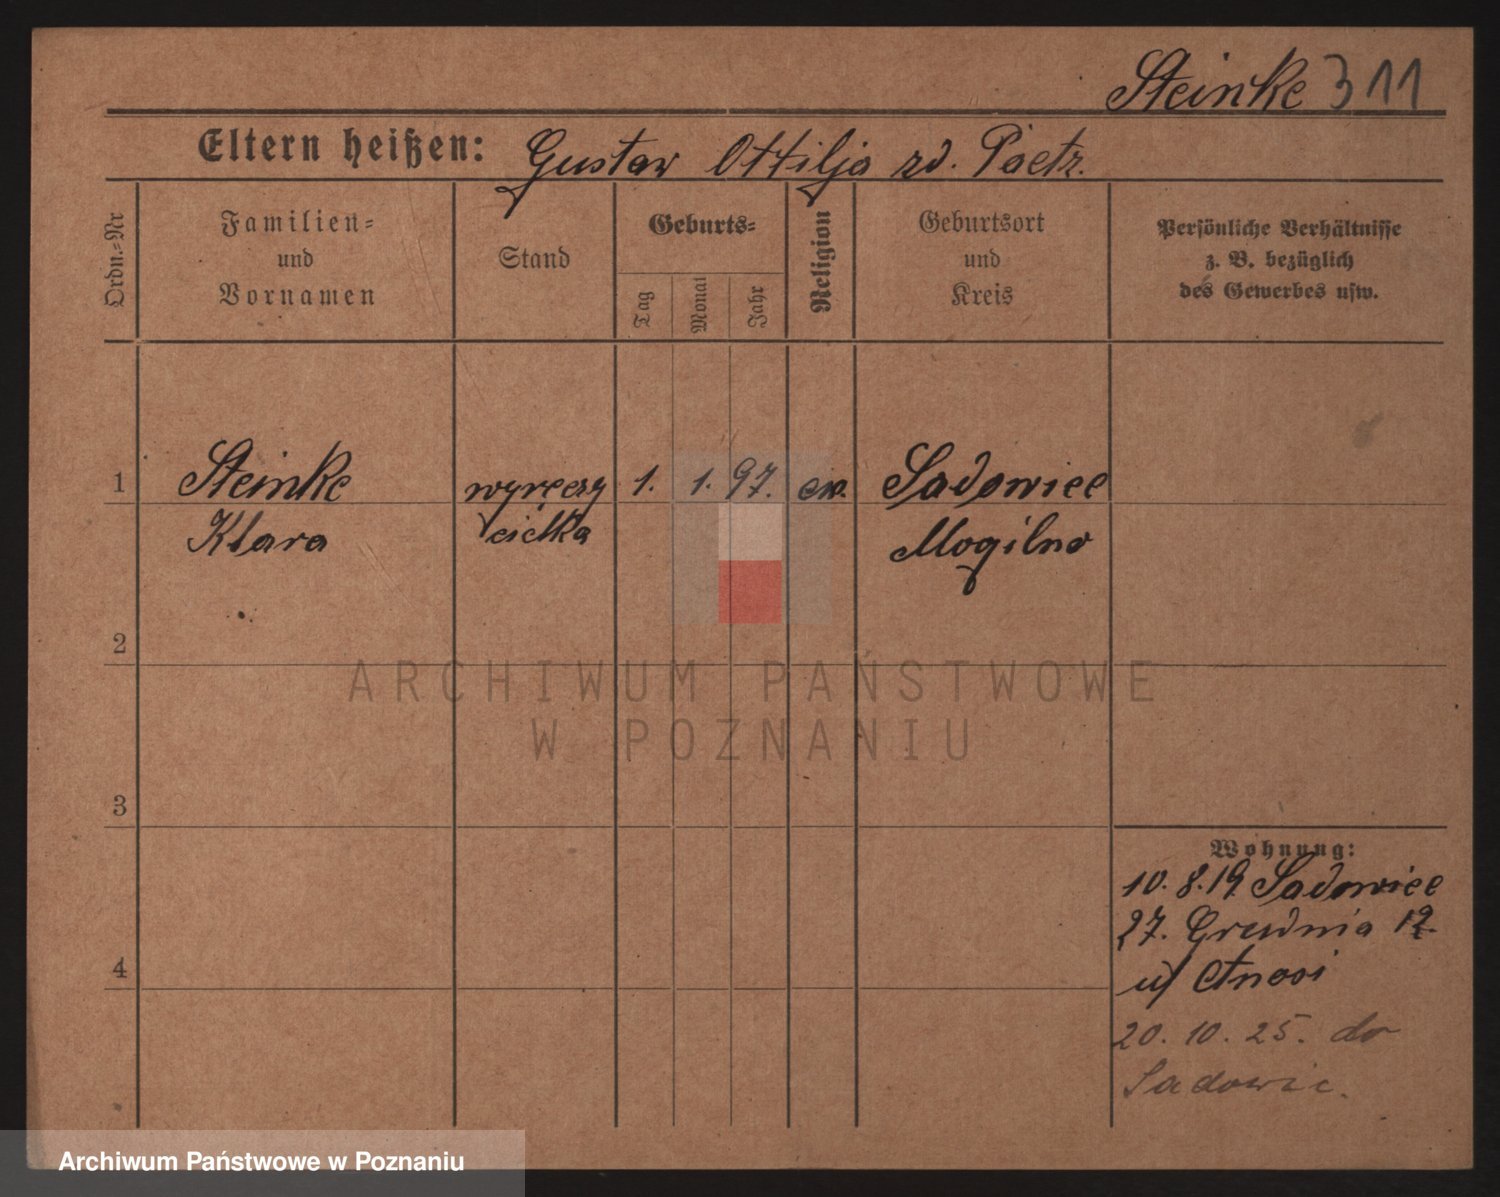 Steinke 311
Eltern heißen: Gustav Ottilja zd. Paetz.
Ordn.=Nr
Familien=
und
Vornamen
Stand
Geburts=
Tag
Monat
Jahr
Religion
Geburtsort
und
Kreis
Persönliche Verhältnisse
z. B. bezüglich
des Gewerbes usw.
1 Steinke wyręczy 1. 1. 97. ew. Sadowiec
Klara cielka Mogilno
2
ARCHIWUM PAŃSTWOWE
W POZNANIU
3
Wohnung:
10. 8. 19. Sadowiec
27. Grudnia 19.
4
20. 10. 25. do
Sadowic.
Archiwum Państwowe w Poznaniu